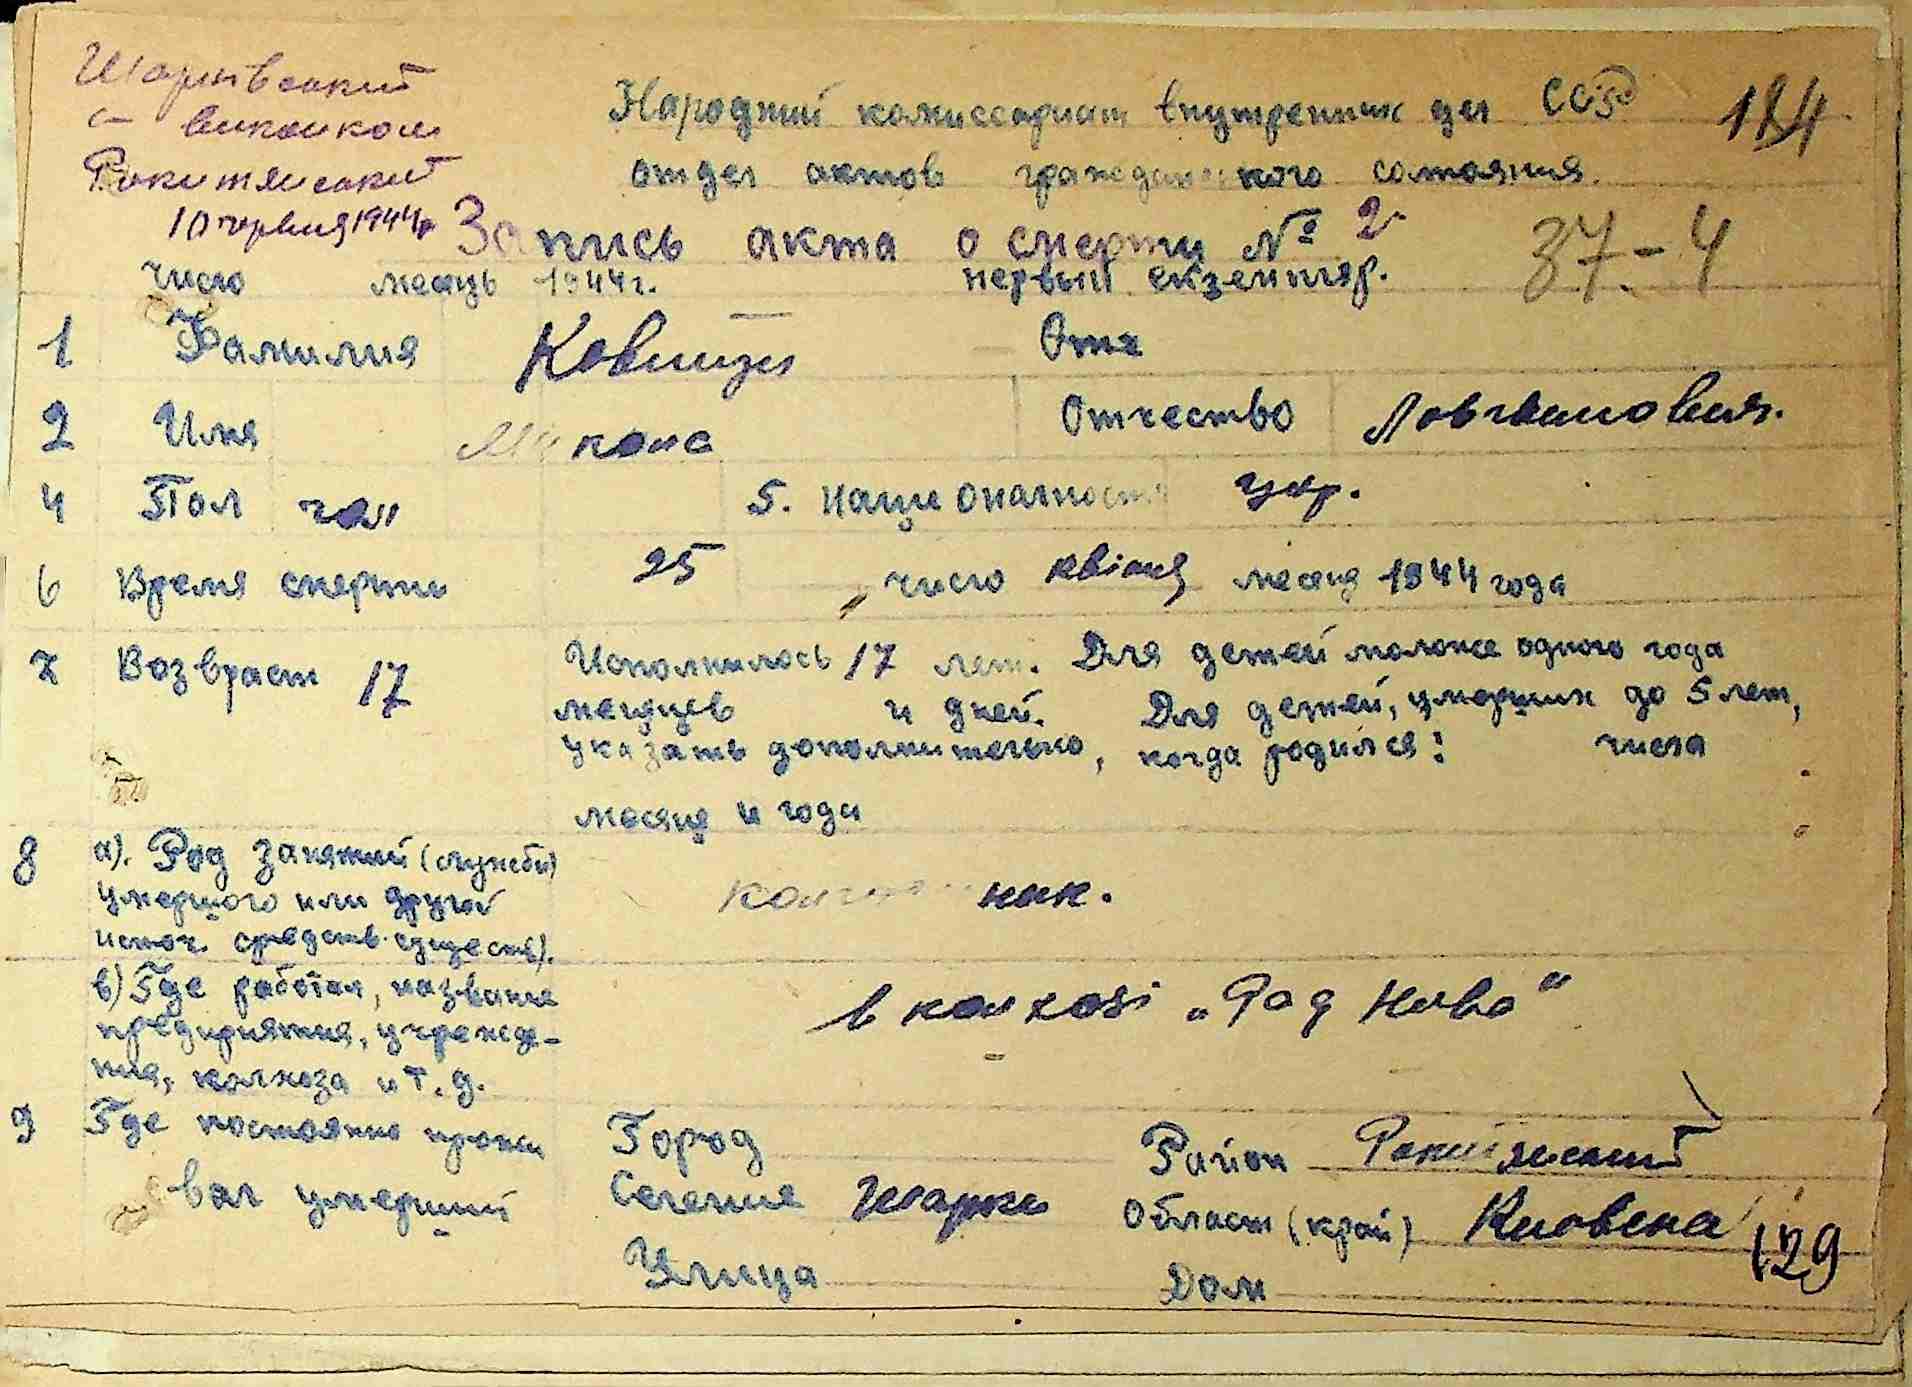 Шарківський
с-виконком
Рокитянський
10 червня 1944р
Народний комиссариат внутренних дел СССР
184
отдел актов гражданского состояния.
Запись акта о смерти № 2
37-4
число месяць 1944 г. первый екземпляр.
1 Фамилия Отч
2 Имя Микола Отчество
4 Пол чол 5. Национальность укр.
6 Время смерти 25 число квітня месяця 1944 года
7 Возвраст 17 Исполнилось 17 лет. Для детей моложе одного года
месяцев и дней. Для детей, умерших до 5 лет,
указать дополнительно, когда родился: числа
месяця и года
8 а). Род занятий (службы)
умершого или другой
источ. средств существ).
колгоспник.
в) Где работал, название
предприятия, учрежде-
ния, колхоза и т. д.
в колхозі „Рад Нива"
9 Где постоянно прожи
вал умерший
Город Район Рокитянский
Селение Шарки Область (край) Киовска
129
Улица Дом